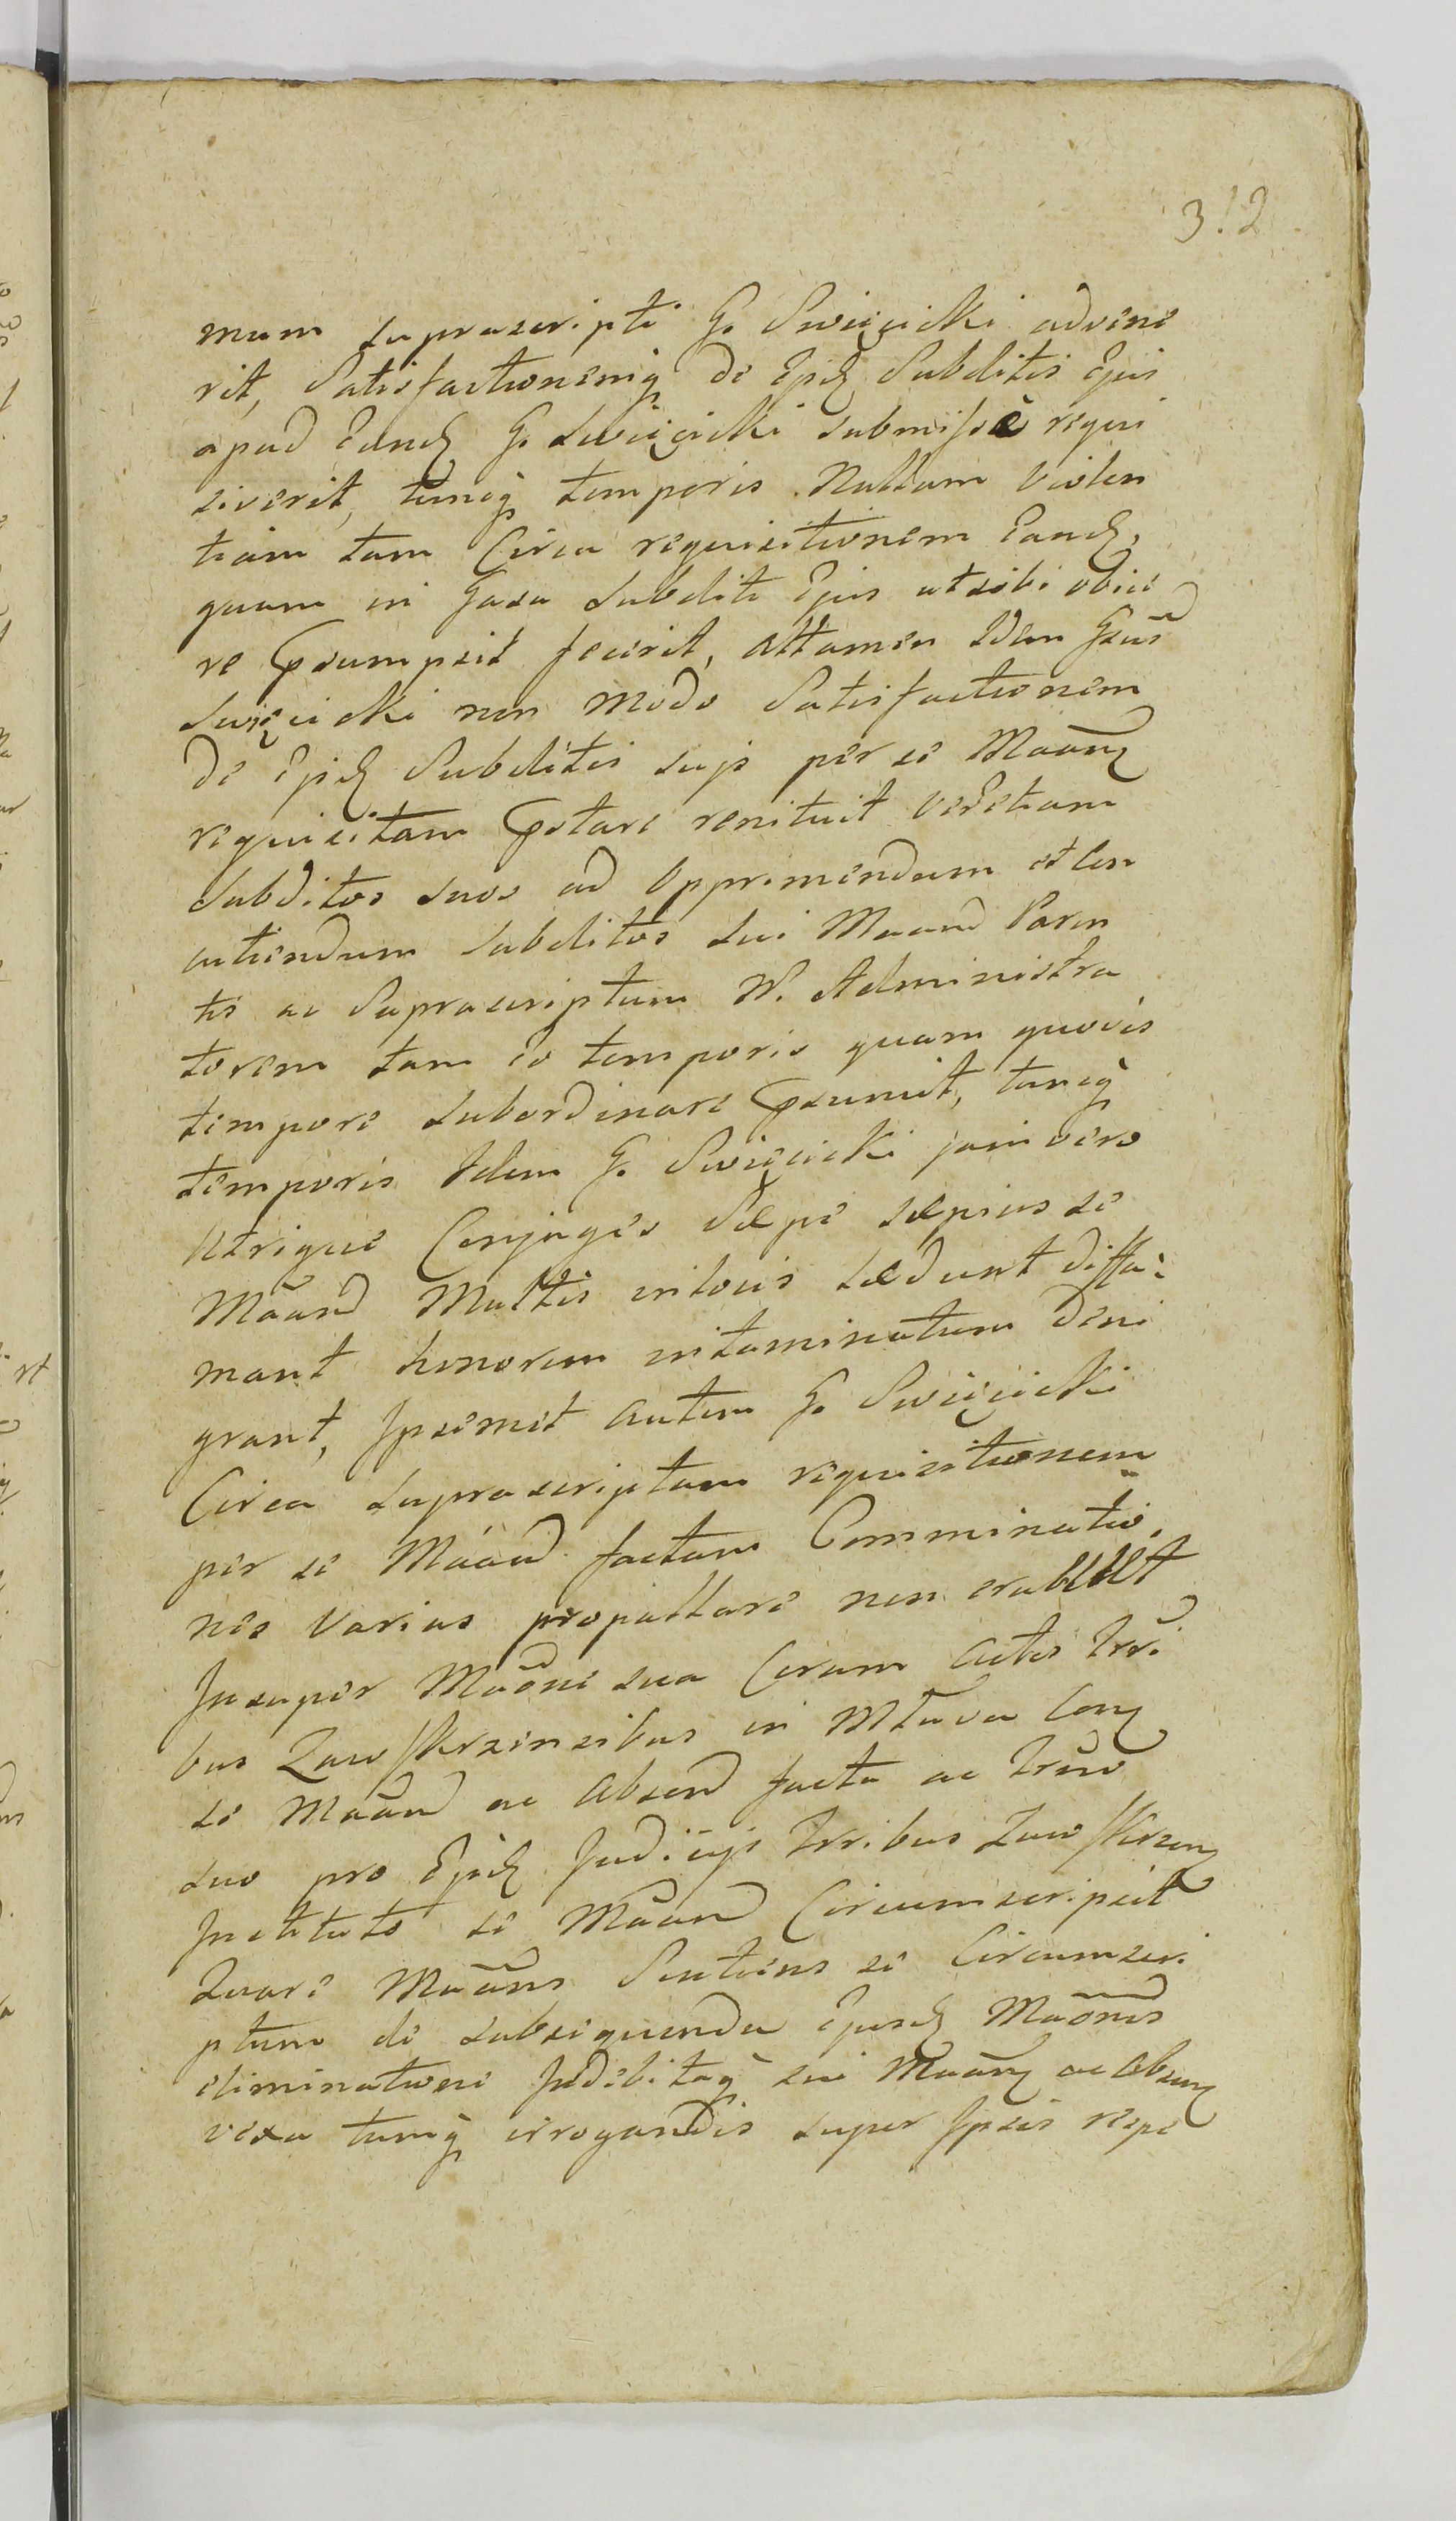 312
mum suprascripti G. Swięcicki advene
rit, Satisfactionemq̃ de Ejusd Subditis Ejus
apud Eund G. Swięcicki submisse requi
siverit, tuncq̃ temporis Nullam Violen
tiam tam Circa requisitionem Eand,
quam in Casa Subditi Ejus ut sibi obiice
re Præsumpsit fecerit, attamen Idem Gsus
Swięcicki non modo Satisfactionem
de Ejusd Subditis suis per se Maan
requisitam Præstare renituit verEtiam
Subditos suos ad Opprimendum et Con
cutiendum Subditos sui Maand Paren
tis ac Suprascriptum N. Administra
torem tam eo temporis quam quovis
tempore Subordinare Præsumit, tuncq̃
temporis Idem G. Swięcicki jam vero
Utrique Conjuges Sæpe sæpius se
Maand Multis in locis lædunt diffa-
mant honorem intaminatum deni
grant, Ipsemet autem G. Swięcicki
Circa Suprascriptam requisitionem
per se Maand factam Comminatio
nes Varias propallare non erubuit
Insuper Maõne sua Coram Actis Trri
bus Zawskrzinsibus in Mlava Con
se Maand ac Absend facta ac Trño
suo pro Ejusd Judicijs Trribus Zawskrzen
Instituto se Maand Circumscripsit
Quare Maãns Sentiens se Circumscri
ptum de subsequenda Ejusd Maõnis
eliminatione Indebitaq̃ sui Maan ac Absen
vexa tumq̃ irrogandis super Ipsis repe